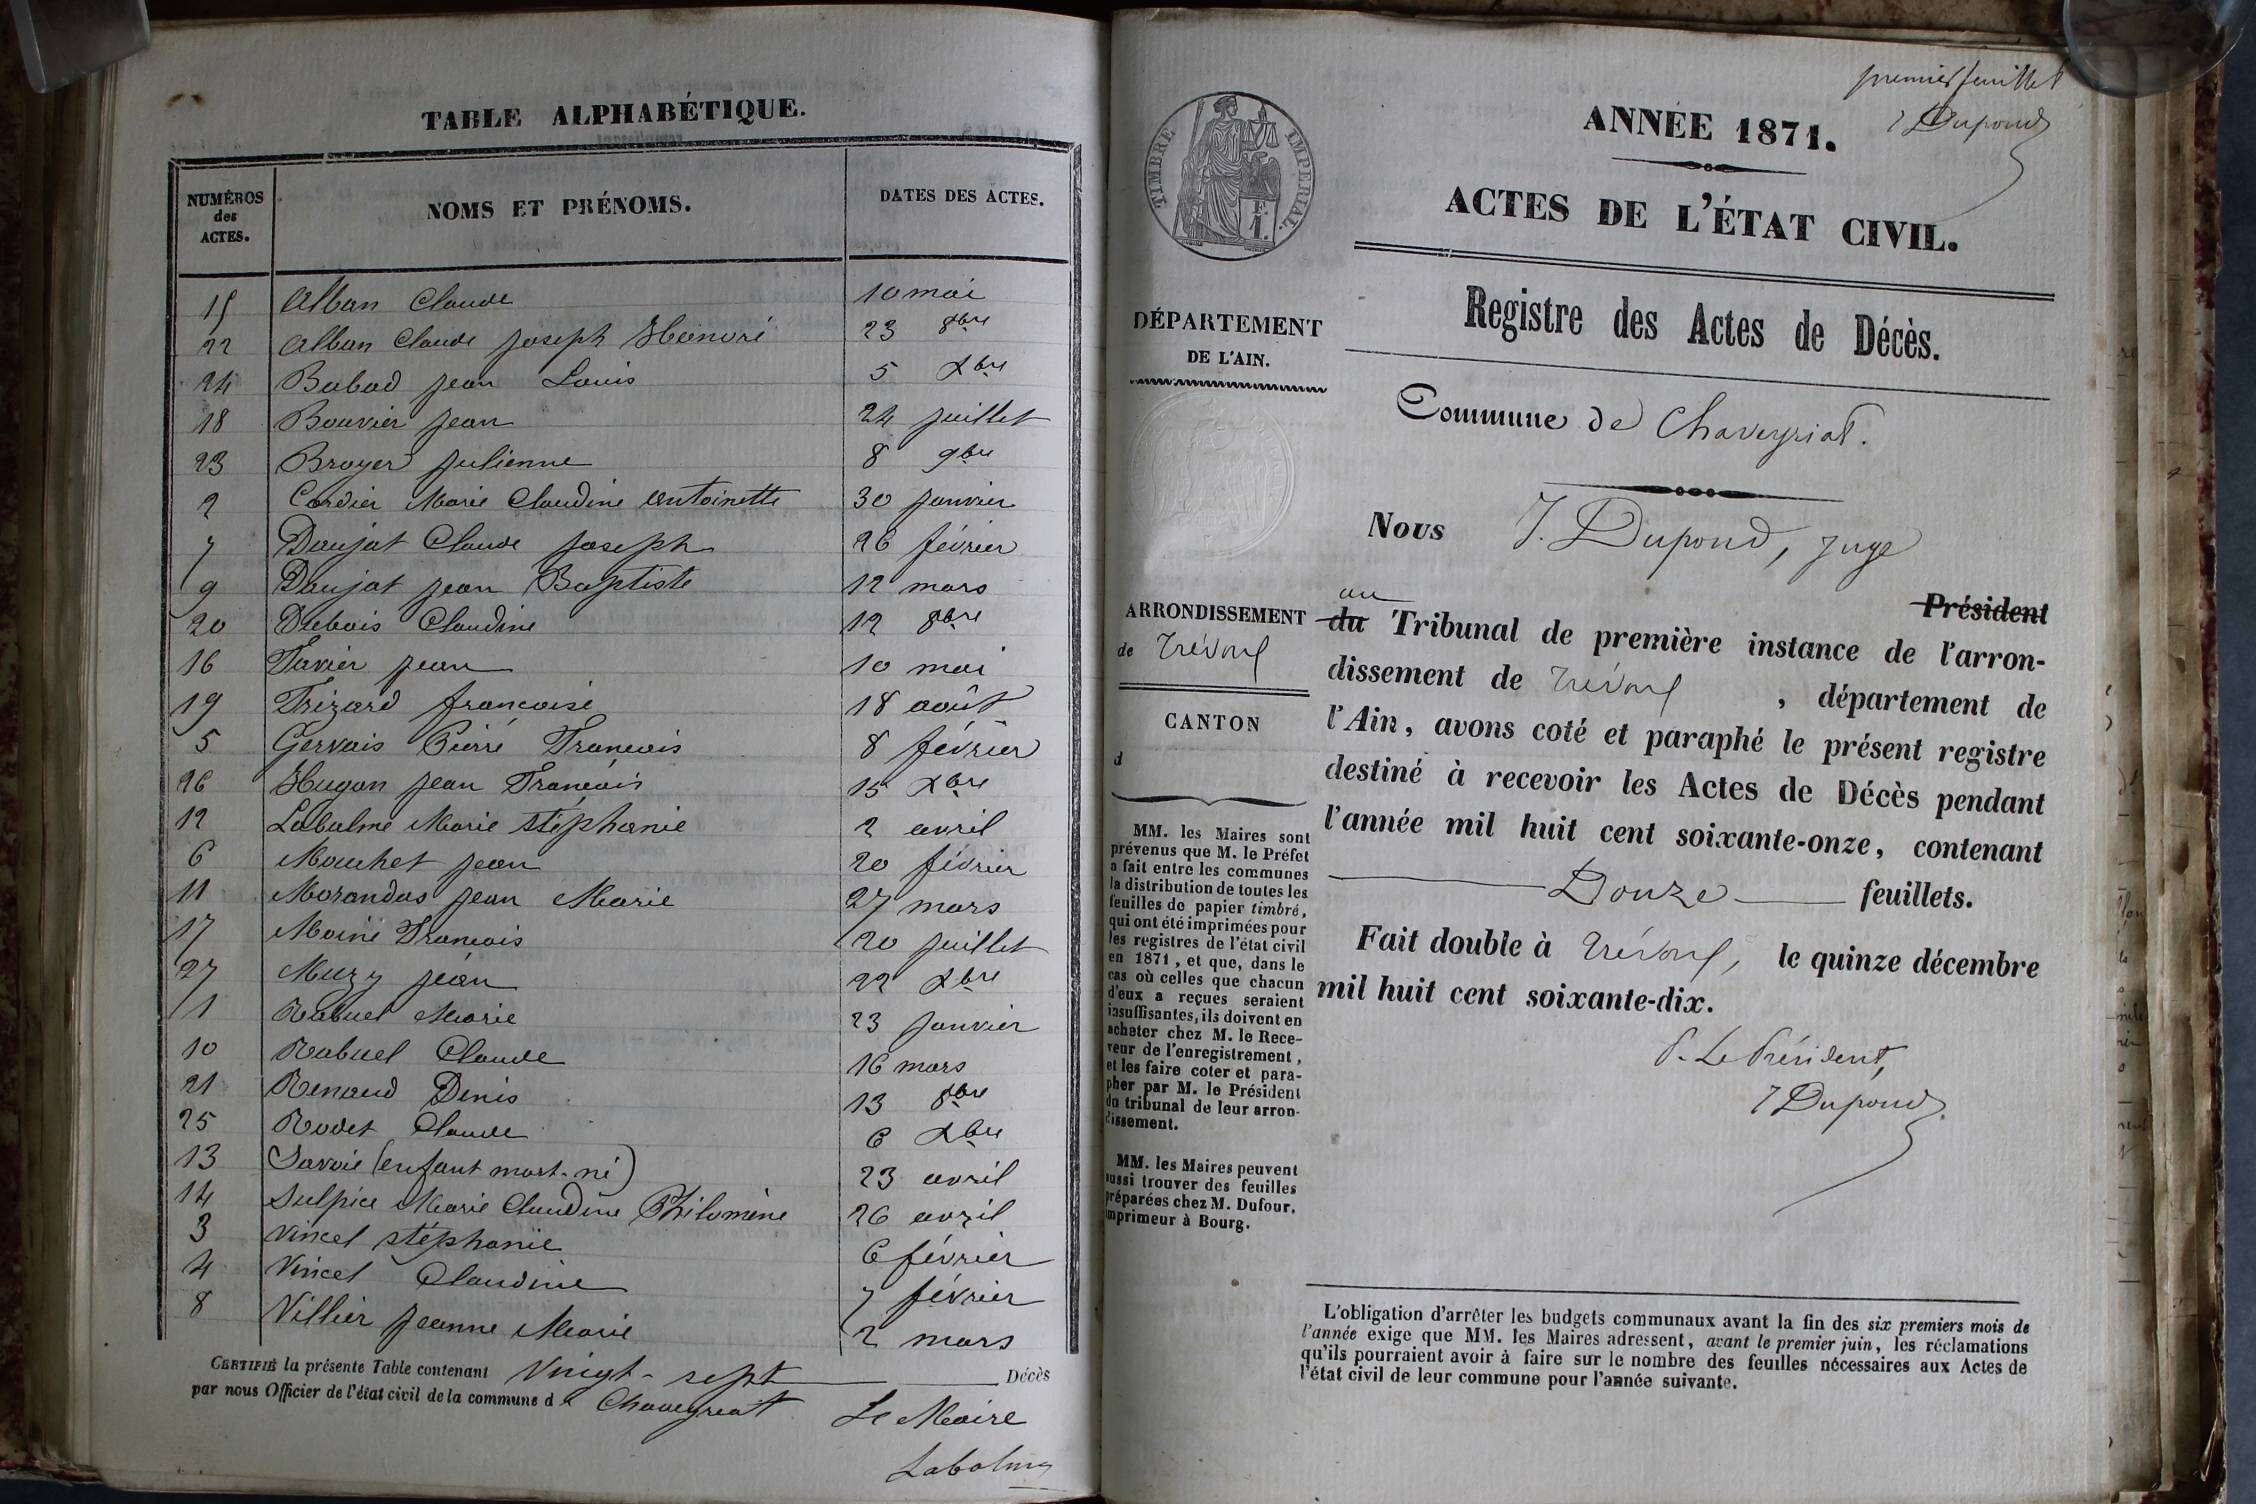 TABLE ALPHABÉTIQUE.
NUMÉROS des ACTES. NOMS ET PRÉNOMS. DATES DES ACTES.
15 Alban Claude 10 mai
22 Alban Claude Joseph Honoré 23 8bre
24 Babad Jean Louis 5 Xbre
18 Bouvier Jean 24 juillet
23 Broyer Julienne 8 9bre
2 Cordier Marie Claudine Antoinette 30 janvier
7 Daujat Claude Joseph 26 février
9 Daujat Jean Baptiste 12 mars
20 Dubois Claudine 12 8bre
16 Favier Jean 10 mai
19 Frizard francoise 18 août
5 Gervais Pierre Francois 8 février
26 Hugon Jean Francois 15 Xbre
12 Labalme Marie Stéphanie 2 avril
6 Mouchet Jean 20 février
11 Morandas Jean Marie 27 mars
17 Moine Francois 20 juillet
27 Muzy Jean 22 Xbre
1 Rabuel Marie 23 janvier
10 Rabuel Claude 16 mars
21 Renaud Denis 13 8bre
25 Rodet Claude 6 Xbre
13 Savoie (enfant mort-né) 23 avril
14 Sulpice Marie Claudine Philomène 26 avril
3 Vincel Stéphanie 6 février
4 Vincel Claudine 7 février
8 Villier Jeanne Marie 2 mars
CERTIFIÉ la présente Table contenant Vingt-sept Décès
par nous Officier de l'état civil de la commune de Chaveyriat
Le Maire
Labalme
premier feuillet
J Dupond
TIMBRE IMPÉRIAL
1 F.
ANNÉE 1871.
ACTES DE L'ÉTAT CIVIL.
Registre des Actes de Décès.
DÉPARTEMENT
DE L'AIN.
Commune de Chaveyriat.
Nous J. Dupond, juge
Président
ARRONDISSEMENT
de Trévoux
CANTON
d
au
du Tribunal de première instance de l'arron-
dissement de Trévoux, département de
l'Ain, avons coté et paraphé le présent registre
destiné à recevoir les Actes de Décès pendant
l'année mil huit cent soixante-onze, contenant
Douze feuillets.
Fait double à Trévoux, le quinze décembre
mil huit cent soixante-dix.
P. Le Président,
J Dupond
MM. les Maires sont
prévenus que M. le Préfet
a fait entre les communes
la distribution de toutes les
feuilles de papier timbré,
qui ont été imprimées pour
les registres de l'état civil
en 1871, et que, dans le
cas où celles que chacun
d'eux a reçues seraient
insuffisantes, ils doivent en
acheter chez M. le Rece-
veur de l'enregistrement,
et les faire coter et para-
pher par M. le Président
du tribunal de leur arron-
dissement.
MM. les Maires peuvent
aussi trouver des feuilles
préparées chez M. Dufour,
imprimeur à Bourg.
L'obligation d'arrêter les budgets communaux avant la fin des six premiers mois de
l'année exige que MM. les Maires adressent, avant le premier juin, les réclamations
qu'ils pourraient avoir à faire sur le nombre des feuilles nécessaires aux Actes de
l'état civil de leur commune pour l'année suivante.